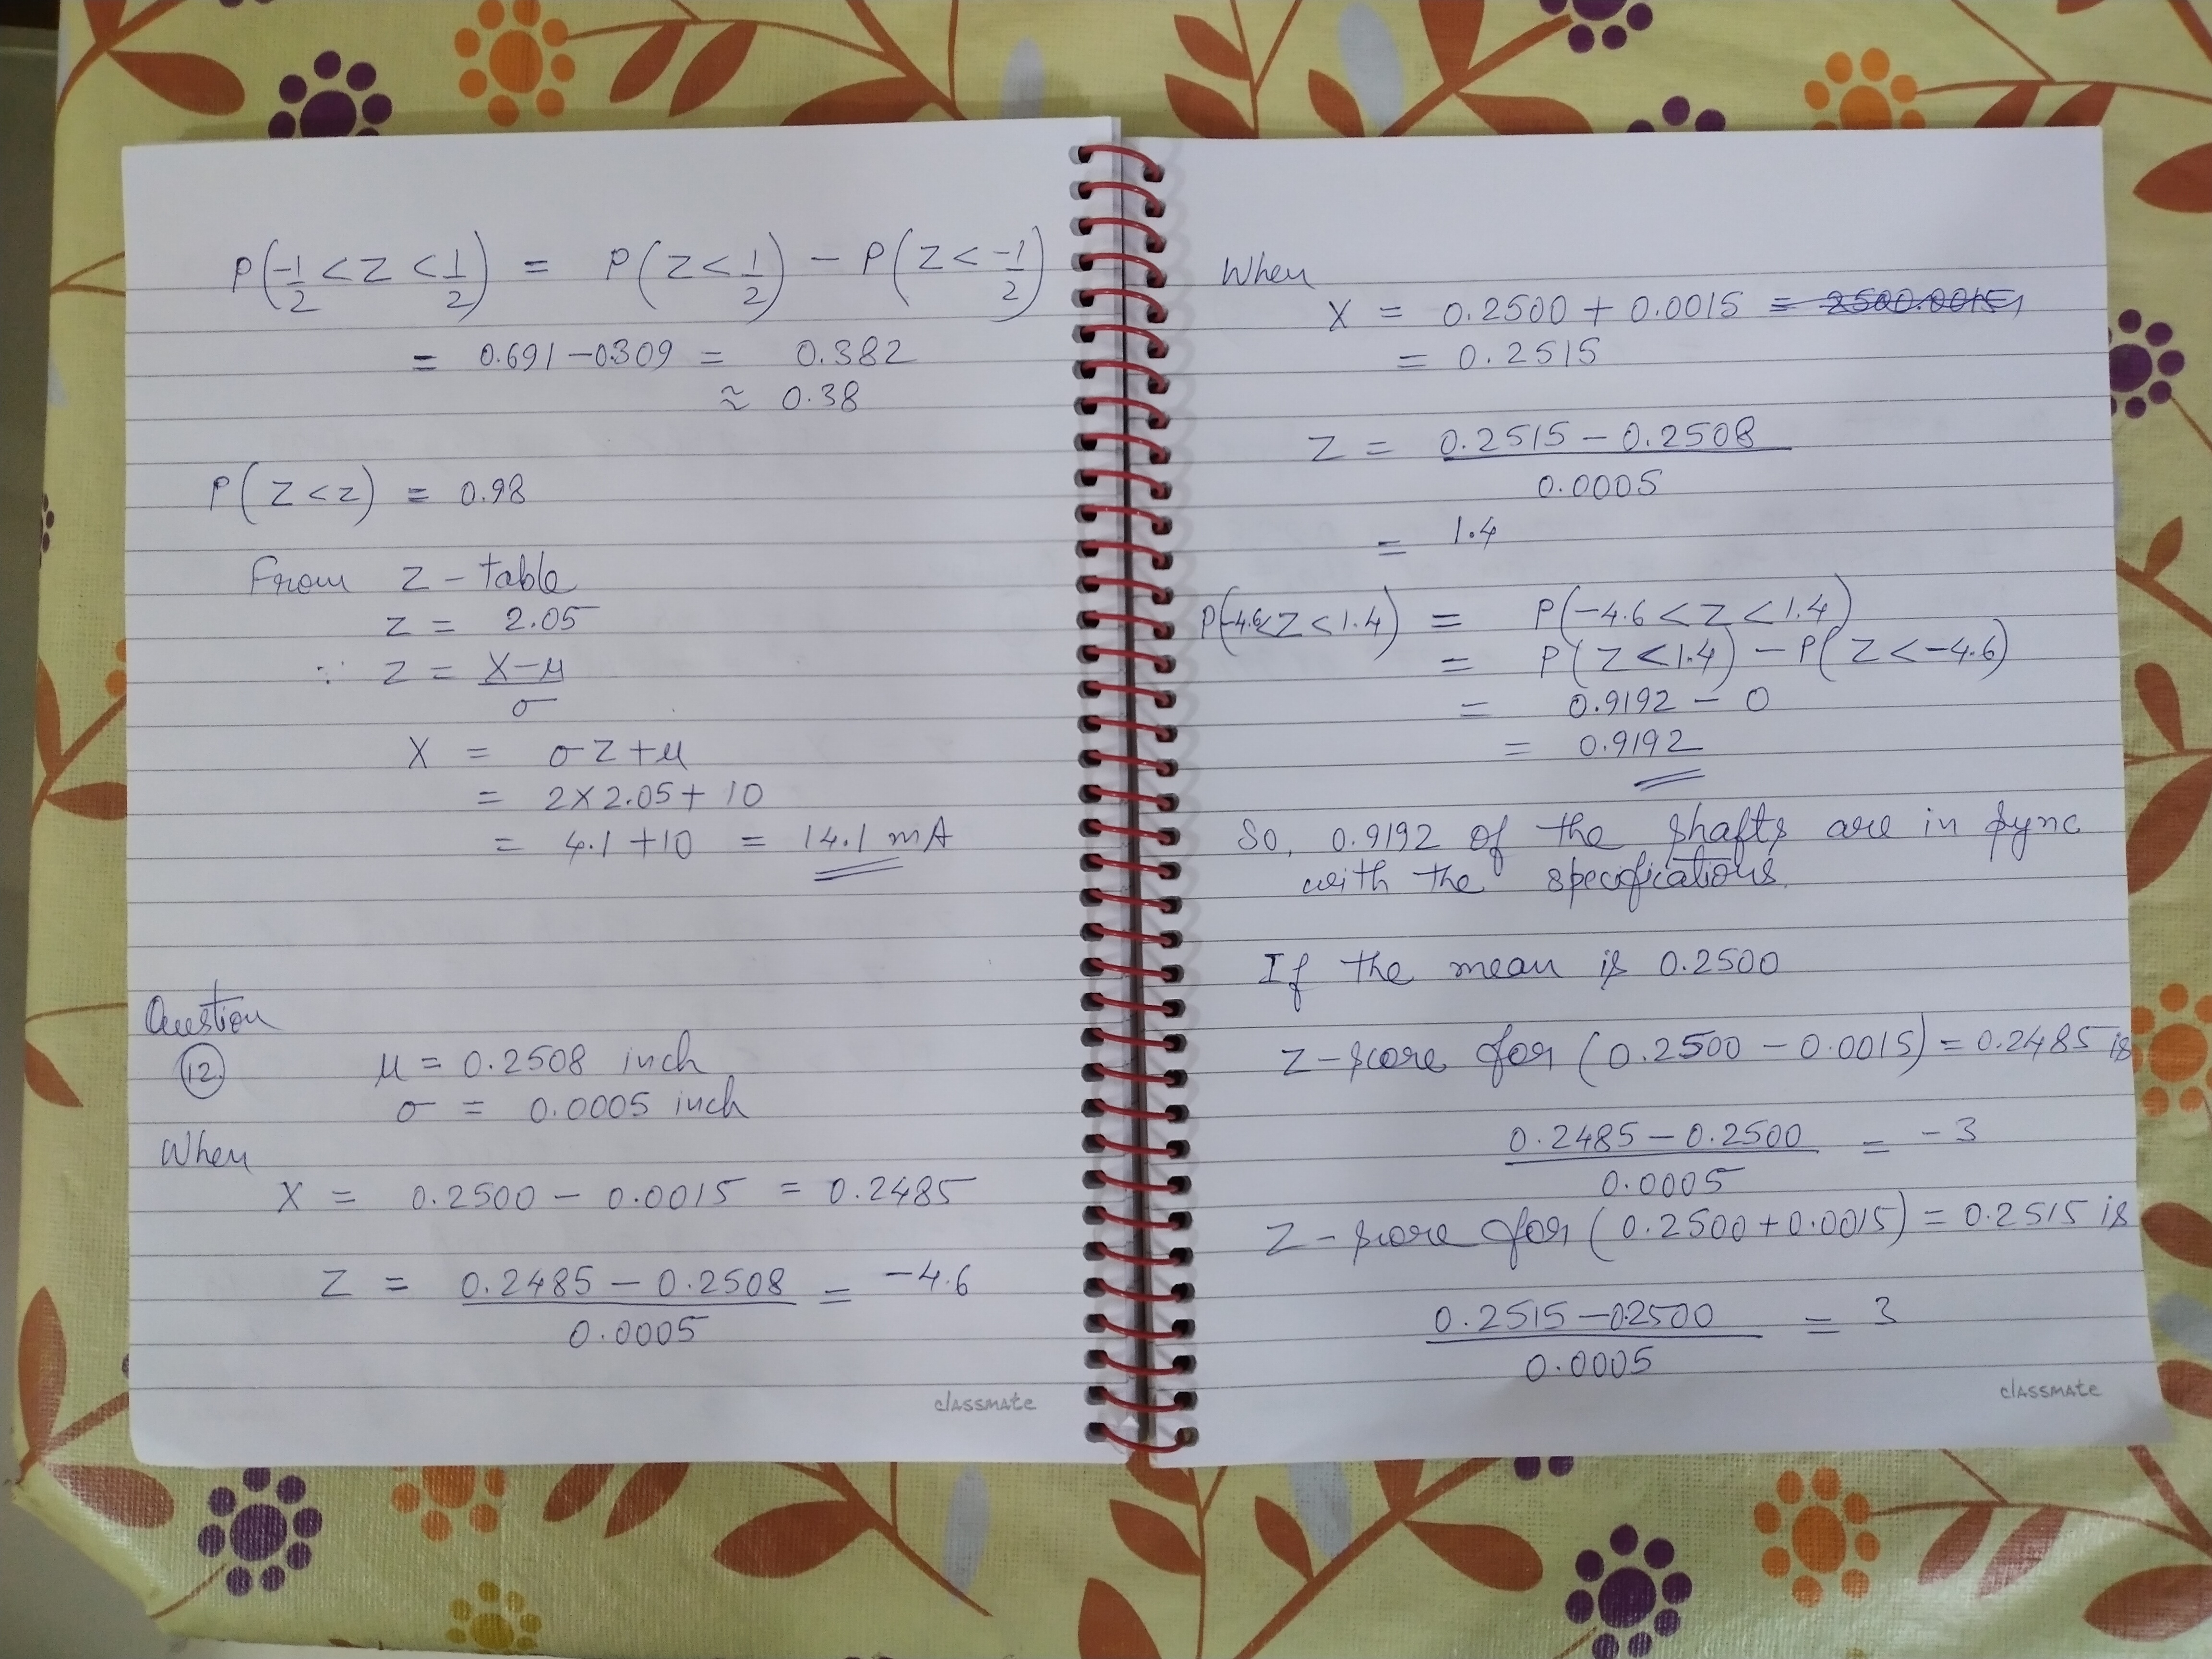 P(-1/2 < Z < 1/2) = P(Z < 1/2) - P(Z < -1/2)
= 0.691 - 0.309 = 0.382
≈ 0.38
P(Z < z) = 0.98
From Z - table
Z = 2.05
∵ Z = X - μ / σ
X = σZ + μ
= 2 × 2.05 + 10
= 4.1 + 10 = 14.1 mA
Question
12 μ = 0.2508 inch
σ = 0.0005 inch
When
X = 0.2500 - 0.0015 = 0.2485
Z = 0.2485 - 0.2508 / 0.0005 = -4.6
classmate
When
X = 0.2500 + 0.0015 =
= 0.2515
Z = 0.2515 - 0.2508 / 0.0005
= 1.4
P(-4.6 < Z < 1.4) = P(-4.6 < Z < 1.4)
= P(Z < 1.4) - P(Z < -4.6)
= 0.9192 - 0
= 0.9192
So, 0.9192 of the shafts are in sync
with the specifications.
If the mean is 0.2500
Z-score for (0.2500 - 0.0015) = 0.2485 is
0.2485 - 0.2500 / 0.0005 = -3
Z-score for (0.2500 + 0.0015) = 0.2515 is
0.2515 - 0.2500 / 0.0005 = 3
classmate